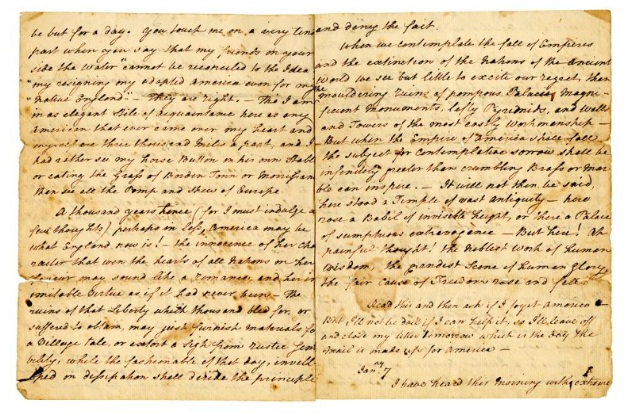 be but for a day. You touch me on a very tene
part when you say that my friends in your
side the water "cannot be reconciled to the Idea
"my resigning my adopted America even for my
"native England" – They are right, – Tho I am
in as elegant Stile of Acquaintance here as any
American that ever came over, my heart and
myself are three thousand miles apart, and I
had rather see my horse Button in his own Stable
or eating the Grass of Borden Town or Morrisania
than see all the Pomp and Shew of Europe.
A thousand years hence (for I must indulge a
few thoughts) perhaps in less, America may be
what England now is! – the innocence of her cha
racter that won the hearts of all Nations in her
favour may sound like a Romance, and her in
imitable virtue as if it had never been – The
ruins of that Liberty which thousands bled for, or
suffered to obtain, may just furnish materials for
a Village tale, or extort a Sigh from Rustic
while the fashionable of that day, envell
oped in dissipation shall deride the principle
and deny the fact.
When we contemplate the fall of Empires
and the extinction of the Nations of the Ancient
World we see but little to excite our regret, than
the mouldering ruins of pompous Palaces, magni
ficent Monuments, lofty Pyramids, and walls
and Towers of the most costly workmanship –
But when the Empire of America shall fall
the subject for contemplative sorrow shall be
infinitely greater than crumbling Brass or Mar
ble can inspire. – It will not then be said,
here stood a Temple of vast antiquity – here
rose a Babel of invisible height, or there a Palace
of sumptuous extravagance – But here! Ah
painful thought! the noblest work of human
Wisdom, the grandest Scene of human glory
the fair cause of Freedom rose and fell.
Read this and then ask if I forget America –
But I'll not be dull if I can help it, so I'll leave off
and close my letter tomorrow which is the day the
mail is made up for America –
Jany 7
I have heard this Morning with extreme